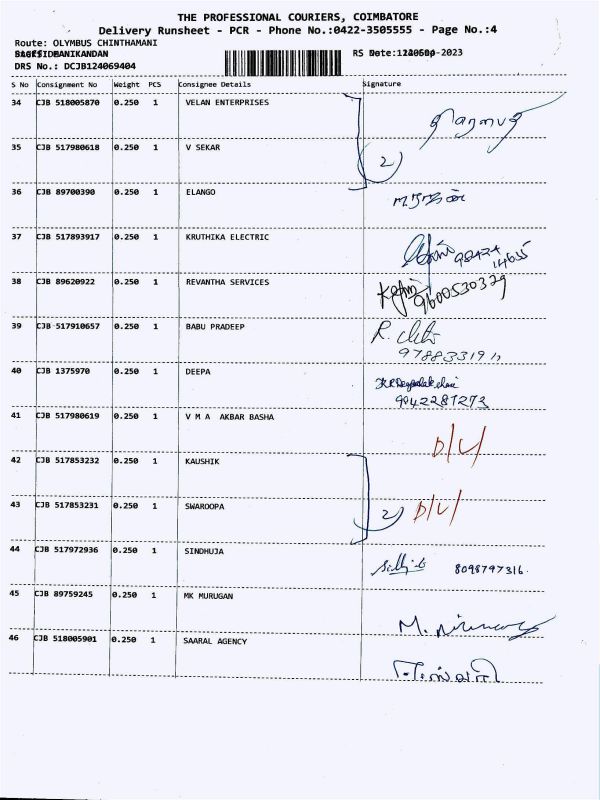 THE PROFESSIONAL COURIERS, COIMBATORE
Delivery Runsheet - PCR - Phone No.:0422-3505555 - Page No.:4
Route: OLYMBUS CHINTHAMANI
RS Note:
-2023
DRS No.: DCJB124069404
S No Consignment No Weight PCS Consignee Details Signature
34 CJB 518005870 0.250 1 VELAN ENTERPRISES
35 CJB 517980618 0.250 1 V SEKAR 2)
36 CJB 89700390 0.250 1 ELANGO
37 CJB 517893917 0.250 1 KRUTHIKA ELECTRIC 98424
14635
38 CJB 89620922 0.250 1 REVANTHA SERVICES
9600530329
39 CJB 517910657 0.250 1 BABU PRADEEP R.
9788331911
40 CJB 1375970 0.250 1 DEEPA
9942281273
41 CJB 517980619 0.250 1 V M A AKBAR BASHA D/L/
42 CJB 517853232 0.250 1 KAUSHIK
43 CJB 517853231 0.250 1 SWAROOPA 2) D/L/
44 CJB 517972936 0.250 1 SINDHUJA 8098797316.
45 CJB 89759245 0.250 1 MK MURUGAN M.
46 CJB 518005901 0.250 1 SAARAL AGENCY